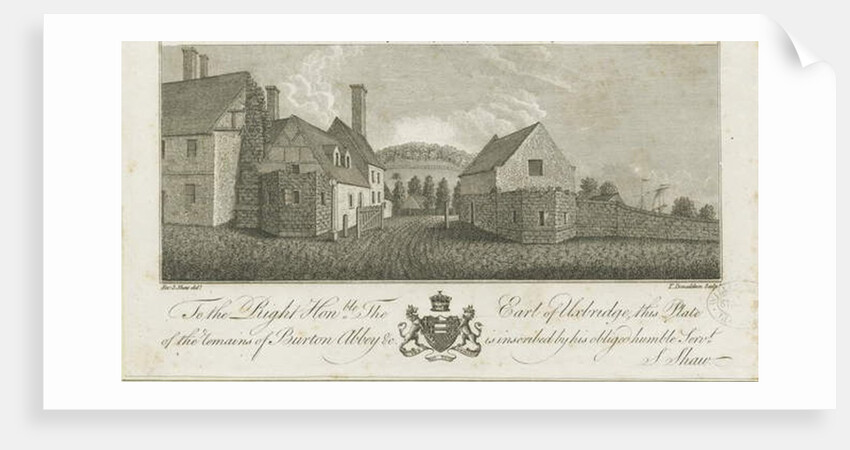 Revd. S. Shaw delt.
T. Donaldson Sculpt.
To the Right Honble. The Earl of Uxbridge, this Plate
of the remains of Burton Abbey &c. is inscribed by his obliged humble Servt.
S. Shaw